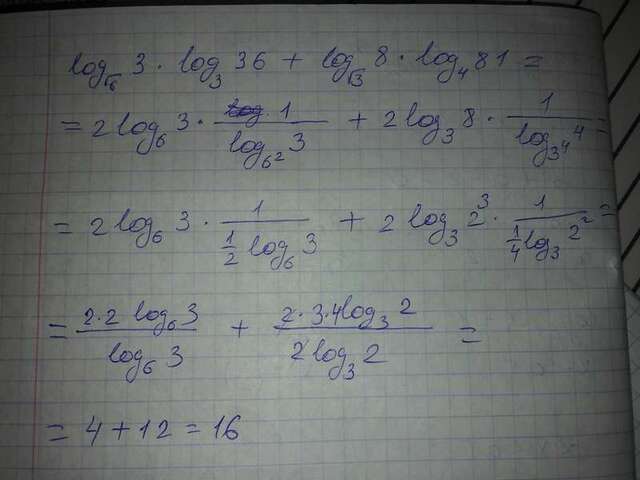 log_√6 3 · log_3 36 + log_√3 8 · log_4 81 =
= 2 log_6 3 · 1/(log_{6^2} 3) + 2 log_3 8 · 1/(log_{3^4} 4) =
= 2 log_6 3 · 1/(1/2 log_6 3) + 2 log_3 2^3 · 1/(1/4 log_3 2^2) =
= (2·2 log_6 3)/(log_6 3) + (2·3·4 log_3 2)/(2 log_3 2) =
= 4 + 12 = 16